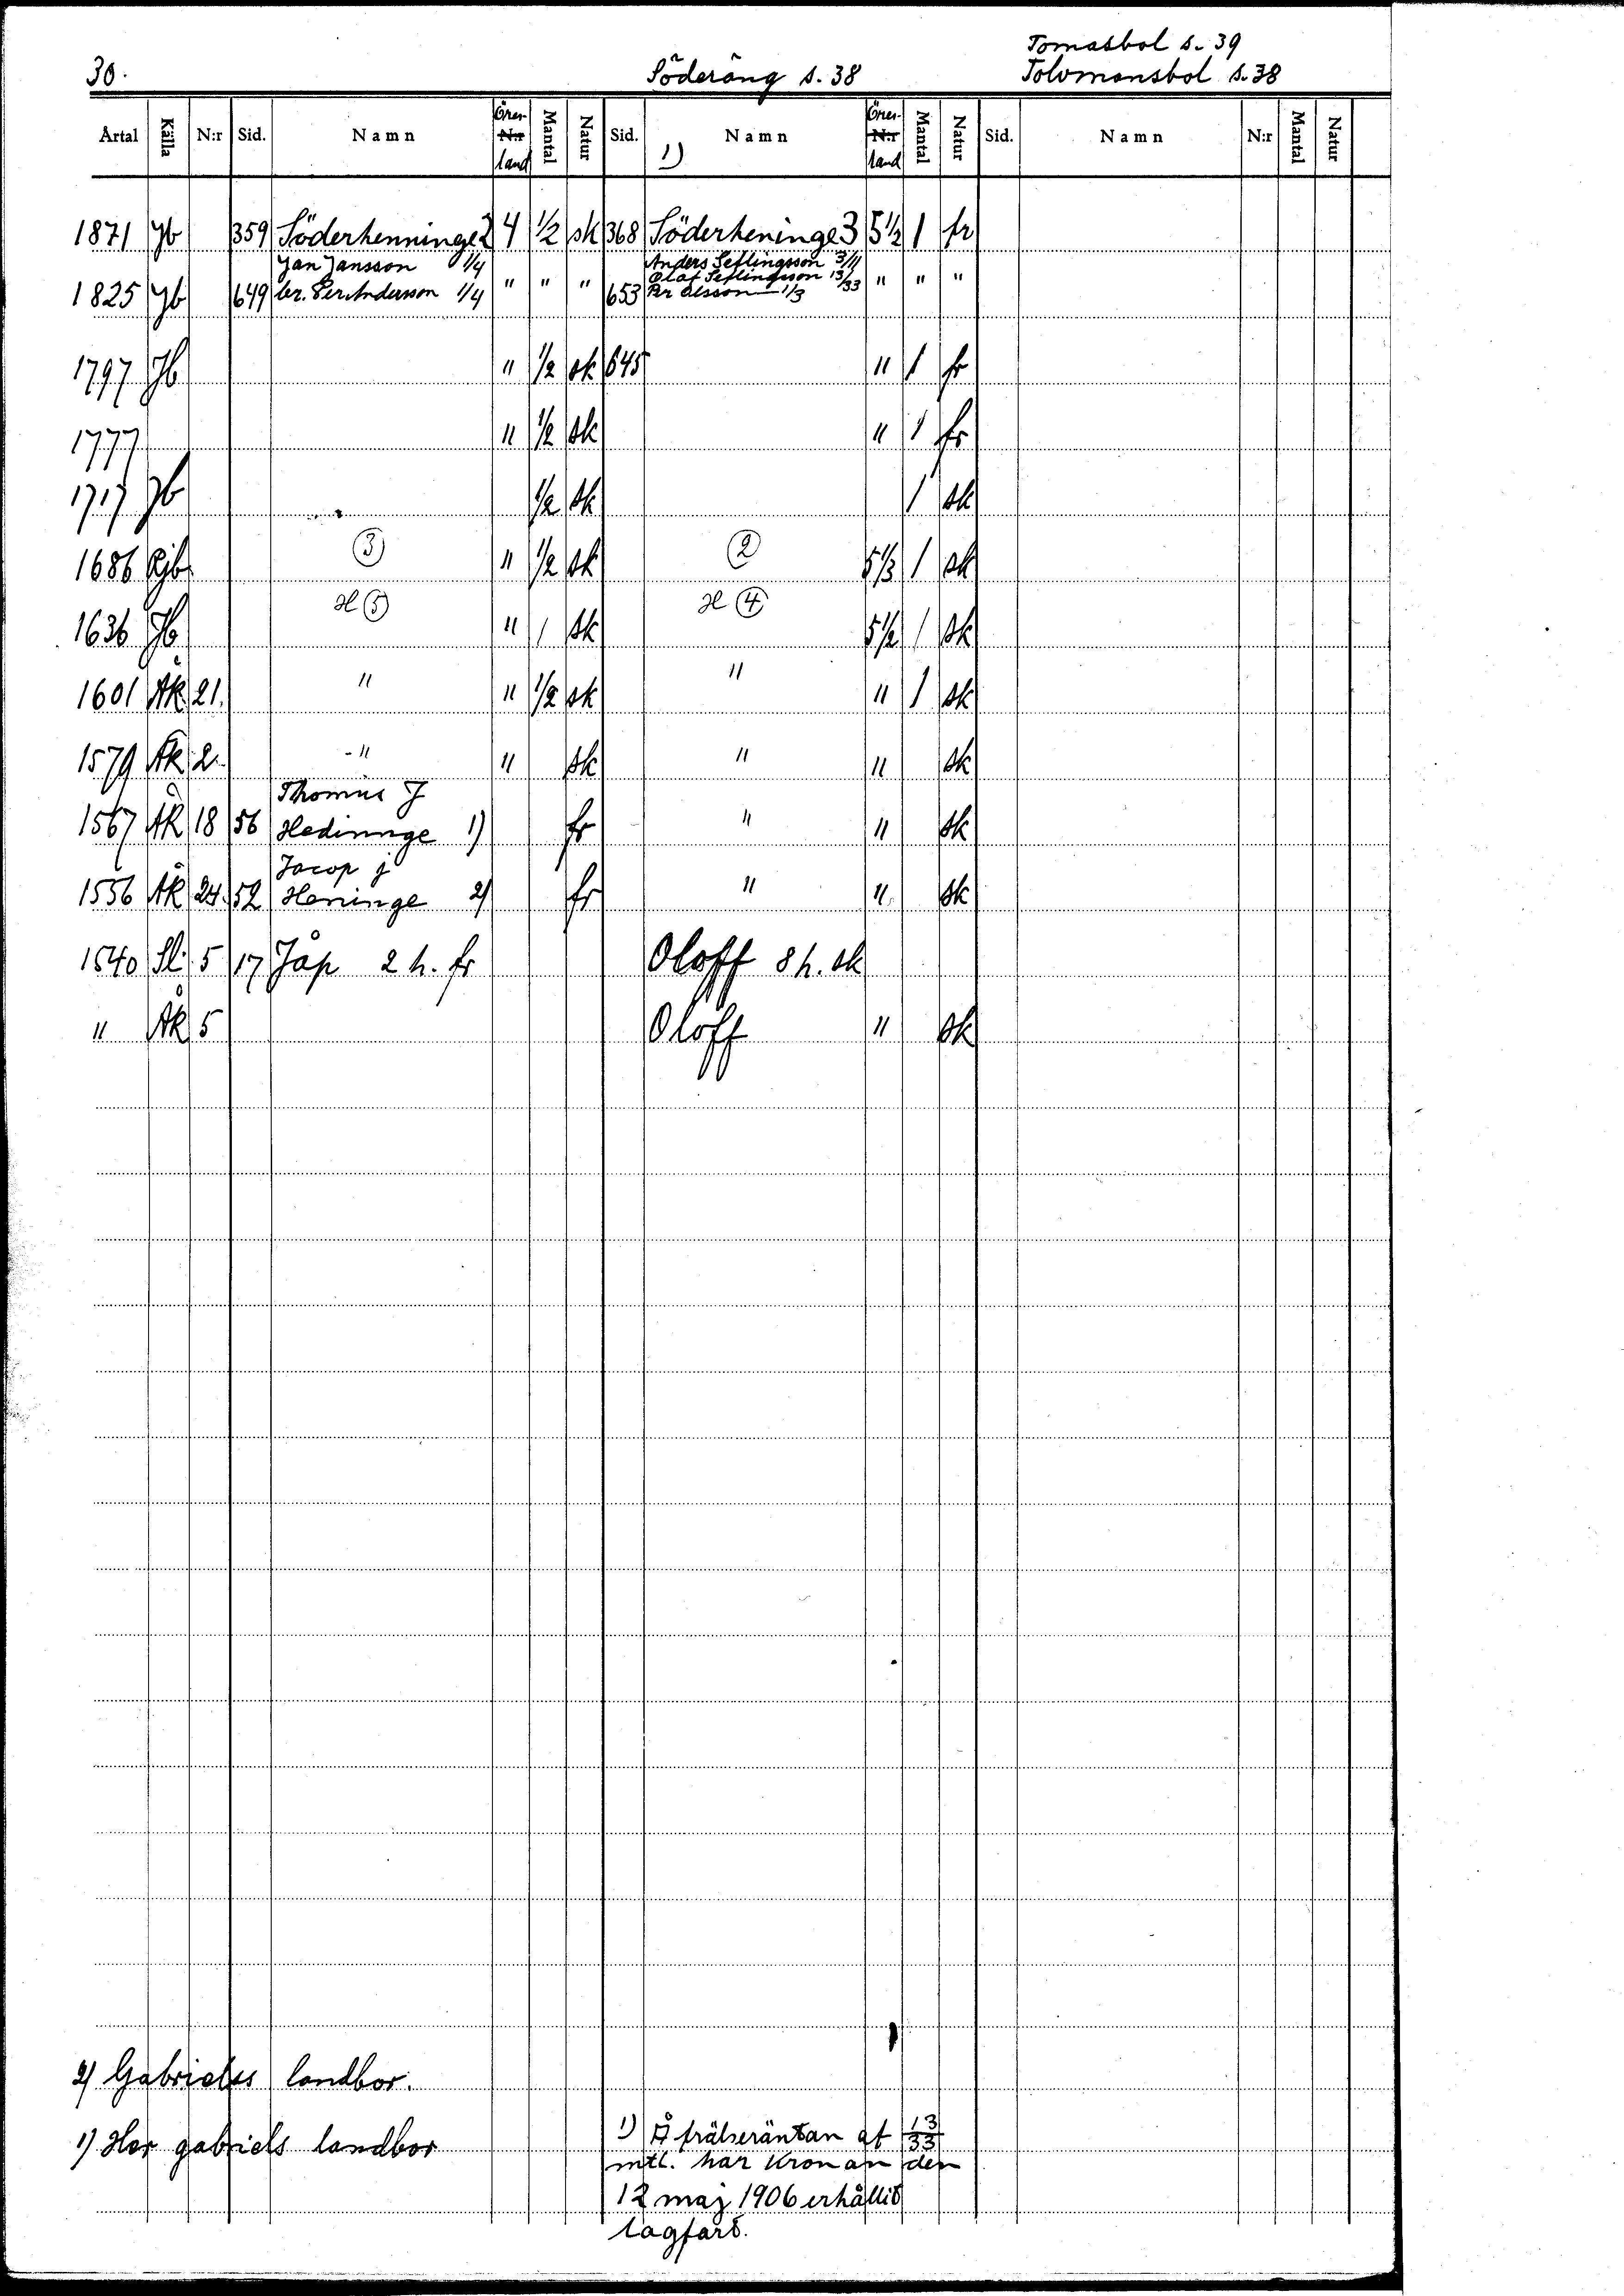 30. Söderäng s. 38 Tomasbol s. 39
Tolvmansbol s. 38
Årtal Källa N:r Sid. Namn Öres- N:r land Mantal Natur Sid. 1) Namn Öres- N:r land Mantal Natur Sid. Namn N:r Mantal Natur
1871 Jb 359 Söderhenninge 2 4 1/2 sk 368 Söderheninge 3 5 1/2 1 fr
Jan Jansson 1/4 Anders Seflingsson 3/11
Olof Seflingsson 13/33
1825 Jb 649 br. Per Andersson 1/4 " " " 653 Per Olsson 1/3 " " "
1797 Jb " 1/2 sk 645 " 1 fr
1777 " 1/2 sk " 1 fr
1717 Jb 1/2 sk 1 sk
1686 Rjb 3 " 1/2 sk 2 5 1/3 1 sk
1636 Jb H 5 " 1 sk H 4 5 1/2 1 sk
1601 Åk 21. " " 1/2 sk " " 1 sk
1579 Åk 2. -" " sk " " sk
Thomus J
1567 Åk 18 56 Hedinnge 1) fr " " sk
Jacop j
1556 Åk 24. 52 Heninge 2) fr " " sk
1540 Sl. 5 17 Jåp 2 h. fr Oloff 8 h. sk
" Åk 5 Oloff " sk
2) Gabrielss landbor.
1) Her gabriels landbor
1) Å frälseräntan af 13/33
mtl. har Kronan den
12 maj 1906 erhållit
lagfart.